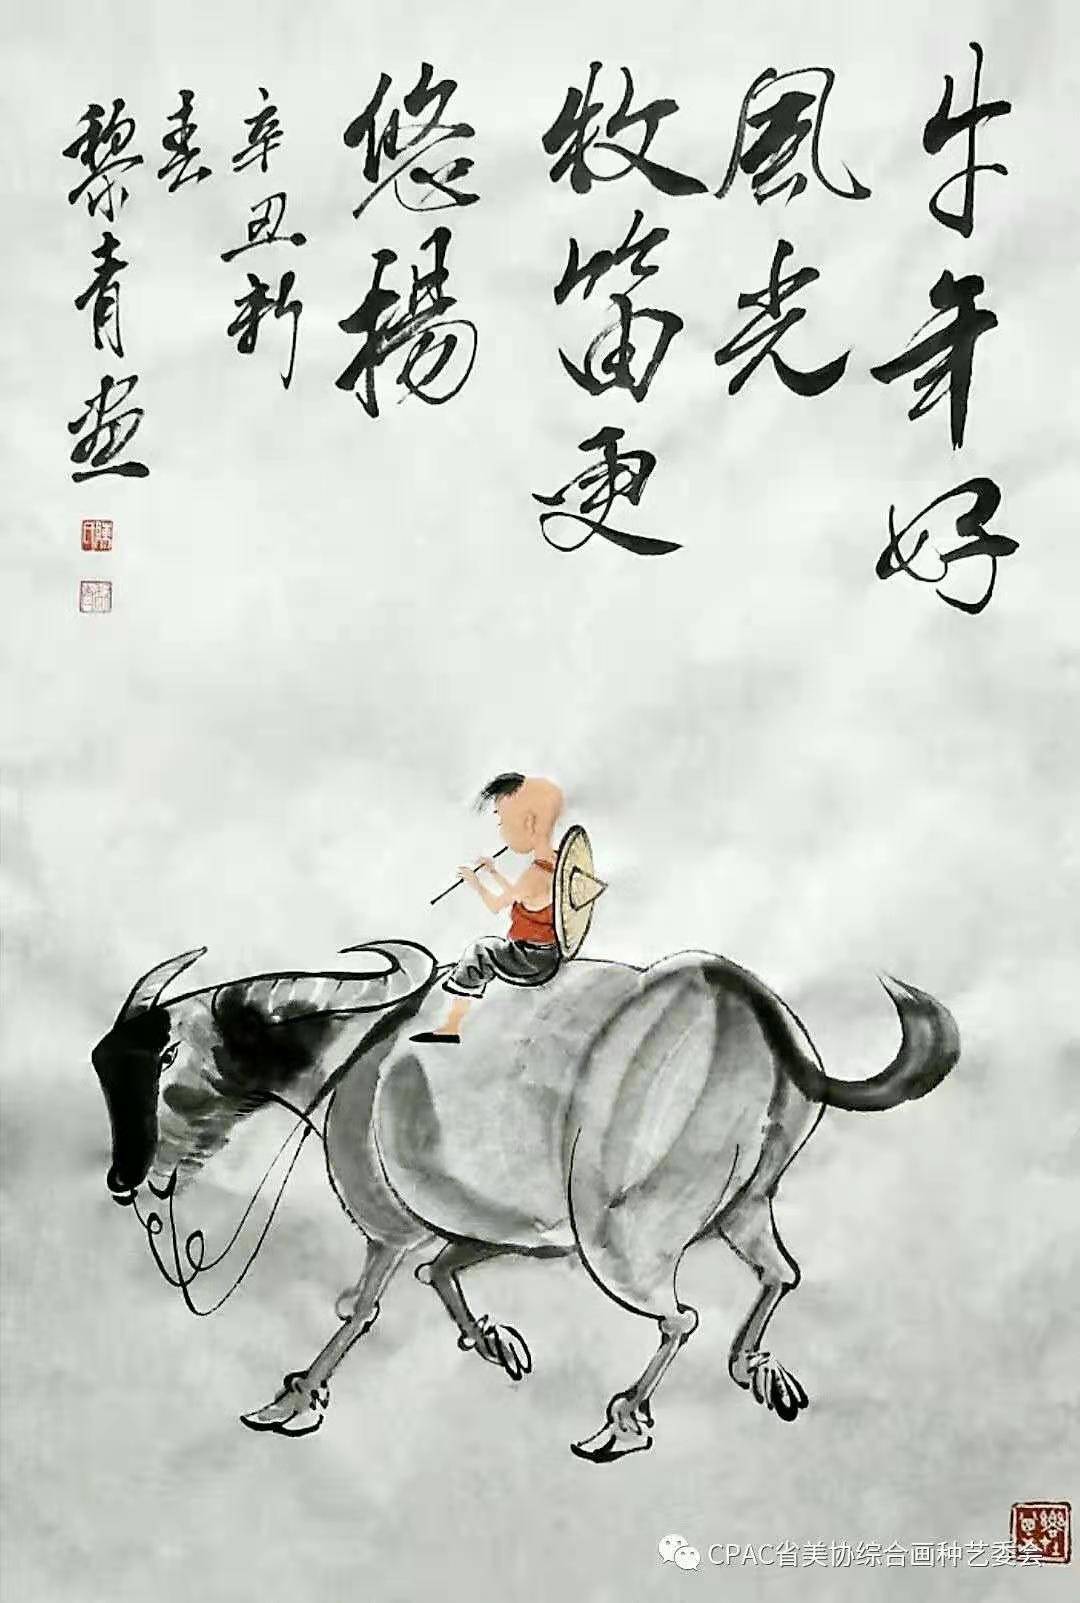 牛年好
風光
牧笛更
悠揚
辛丑新
春
黎青画
CPAC省美协综合画种艺委会